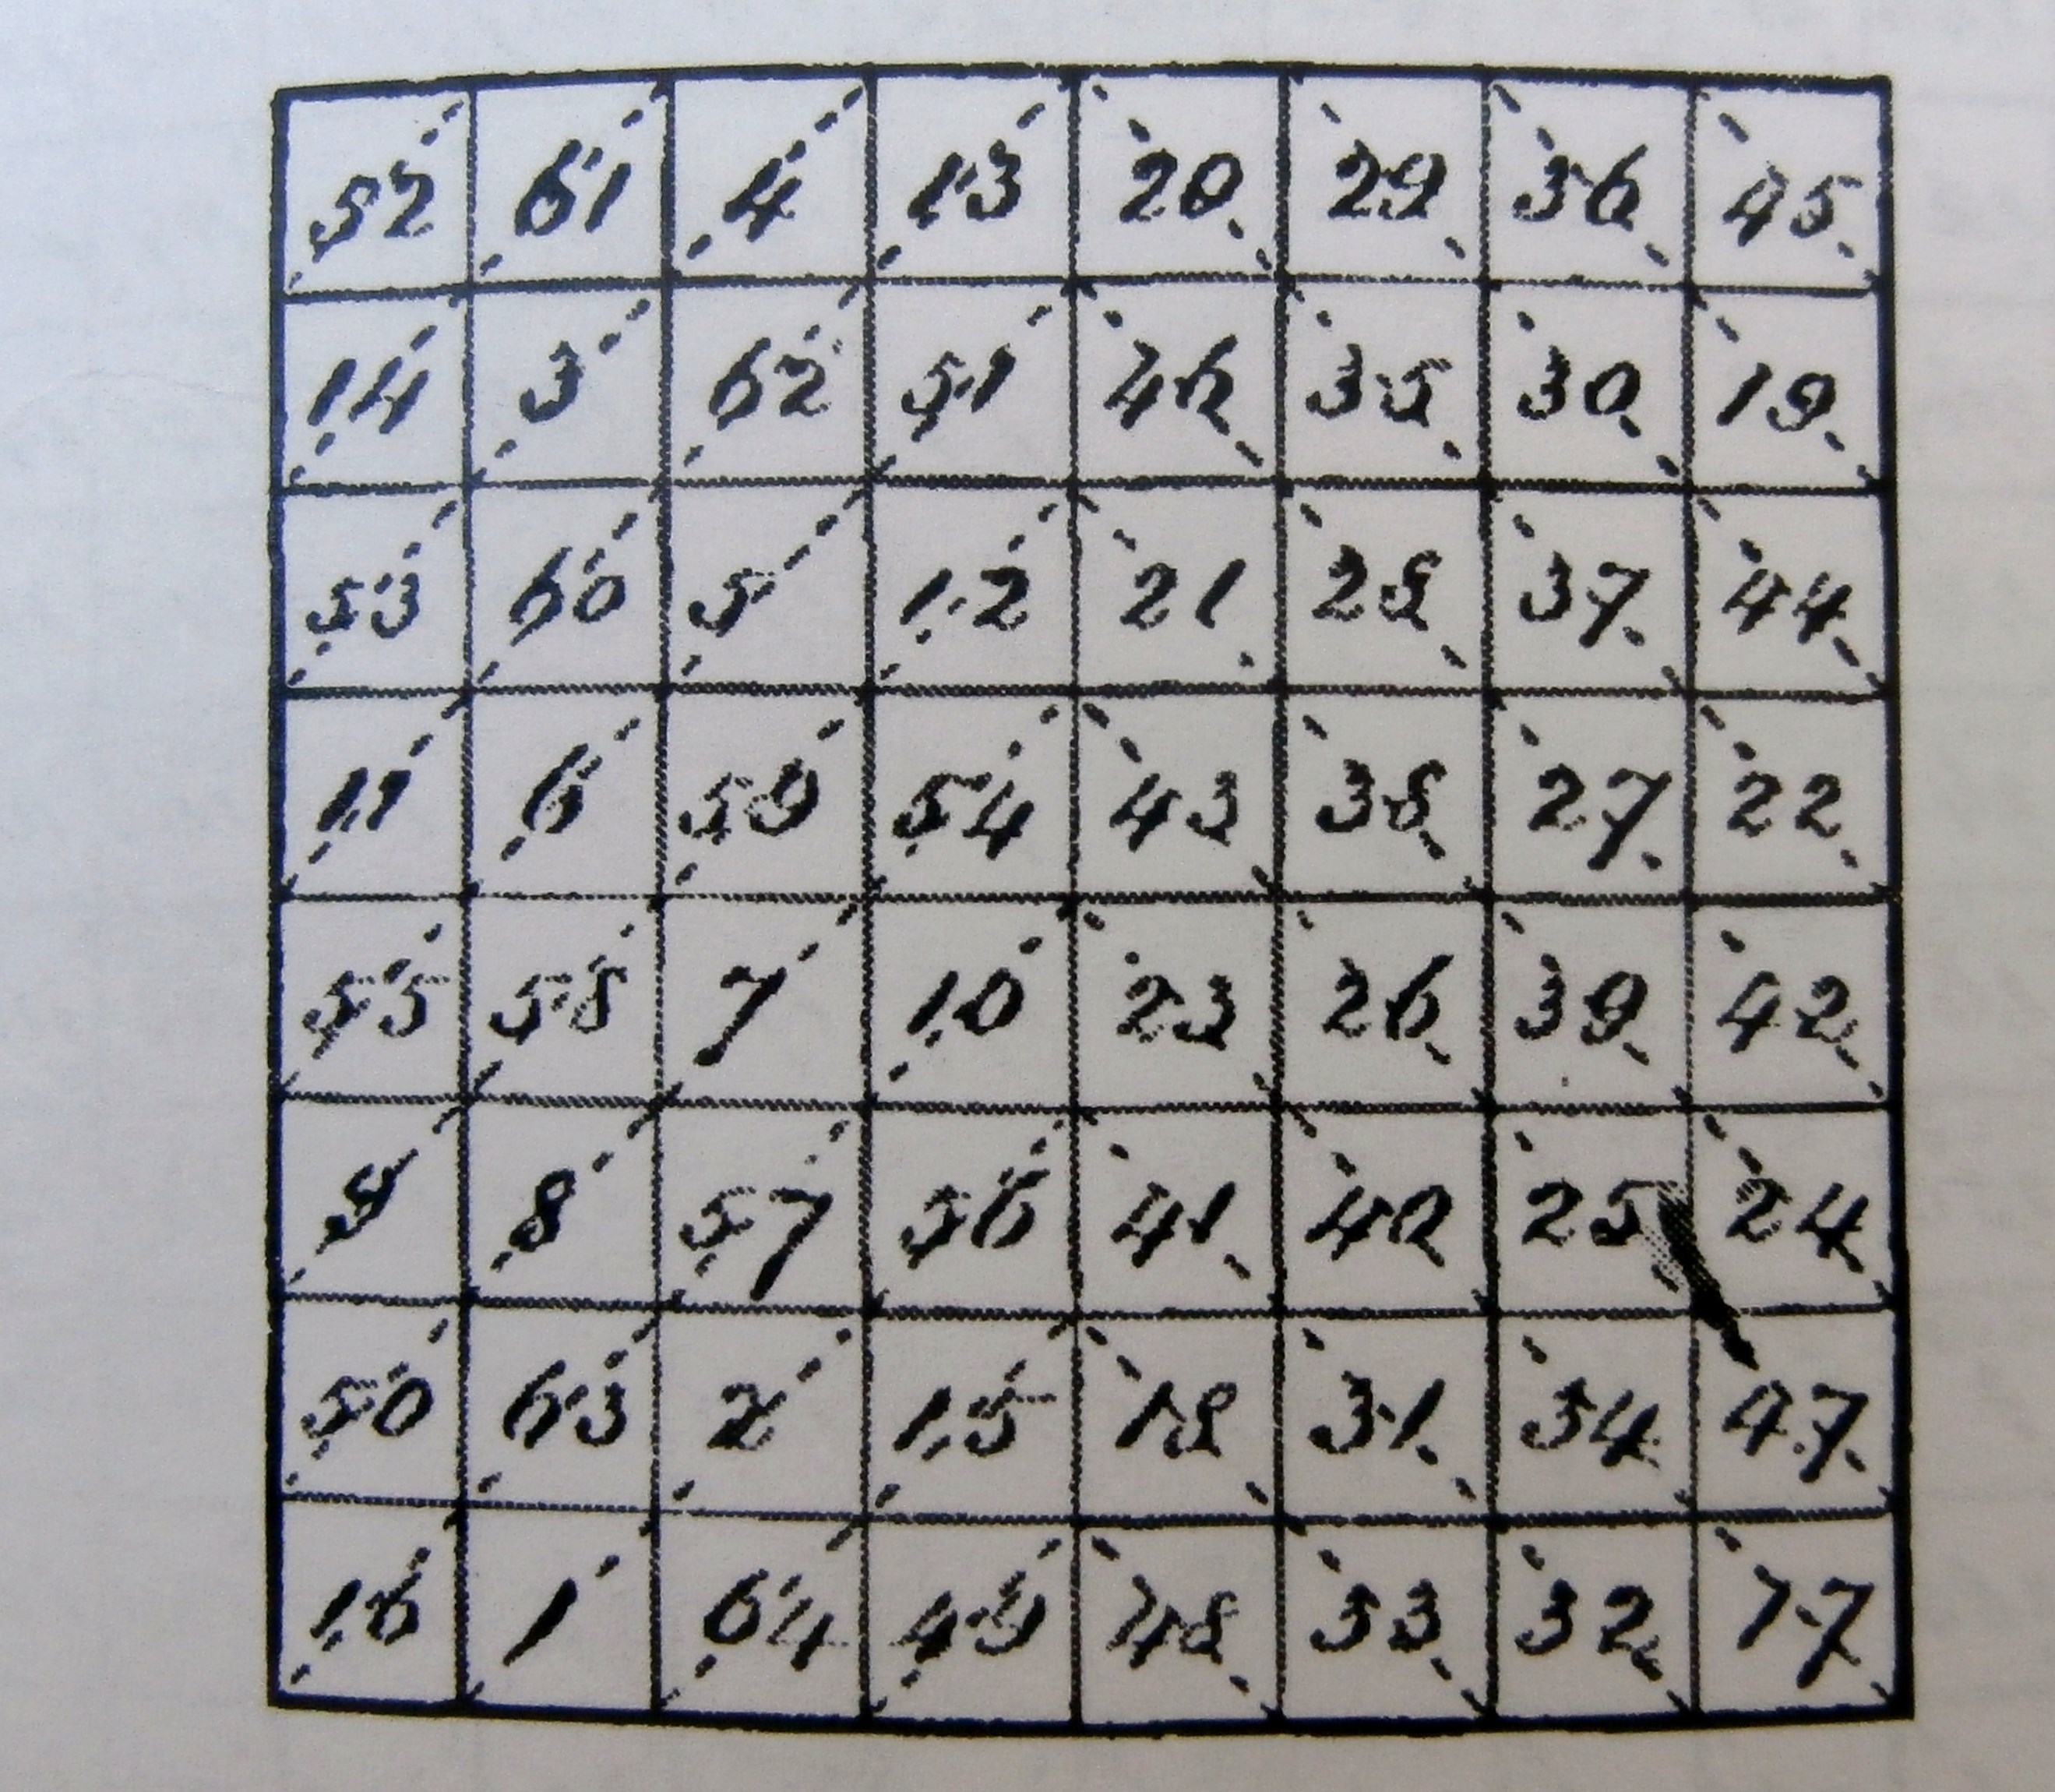 52 61 4 13 20 29 36 45
14 3 62 51 46 35 30 19
53 60 5 12 21 28 37 44
11 6 59 54 43 38 27 22
55 58 7 10 23 26 39 42
9 8 57 56 41 40 25 24
50 63 2 15 18 31 34 47
16 1 64 49 48 33 32 17